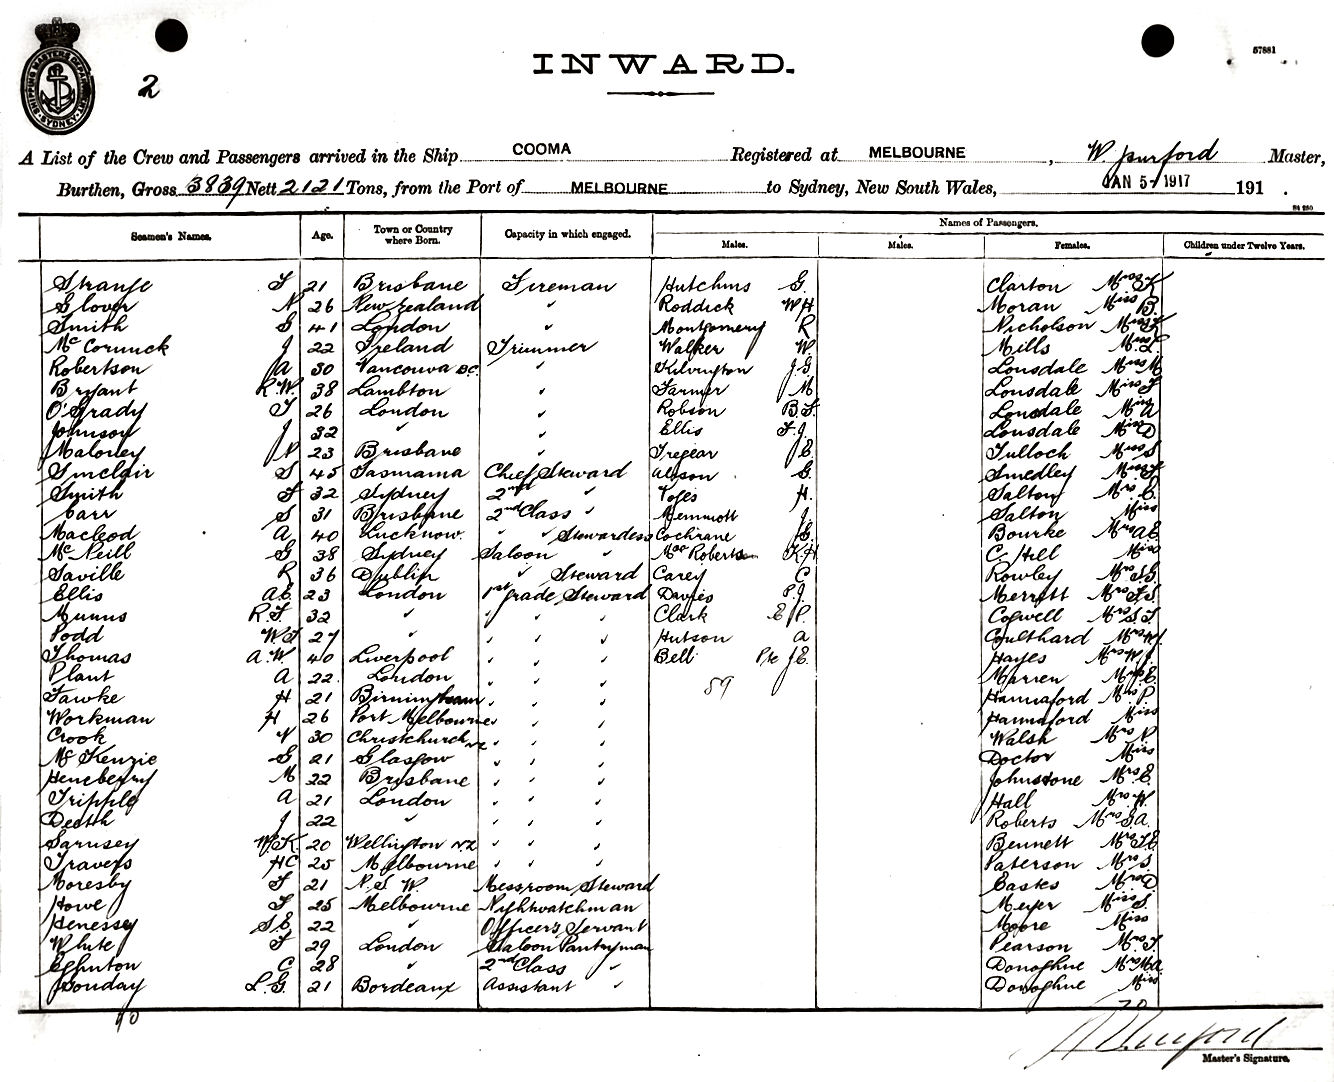 57881
2
INWARD.
SHIPPING MASTERS DEPARTMENT SYDNEY
A List of the Crew and Passengers arrived in the Ship COOMA Registered at MELBOURNE, W Master,
Burthen, Gross 3839 Nett 2121 Tons, from the Port of MELBOURNE to Sydney, New South Wales, JAN 5-1917 191 .
Seamen's Names. Age. Town or Country where Born. Capacity in which engaged. Names of Passengers.
Males. Males. Females. Children under Twelve Years.
Strange 21 Brisbane Fireman Hutchins G. Clarton
Glover N 26 New Zealand " Roddick W H Moran Miss B.
Smith G 41 London " Montgomery R Nicholson
McCormick J 22 Ireland Trimmer Walker W. Mills
Robertson A 30 Vancouver B.C. " Kilvington J.G. Lonsdale Miss M
Bryant R.W. 38 Lambton " Farmer M Lonsdale Miss
O'Grady T 26 London " Robson B.F. Lonsdale Miss A
Johnson J 32 " " Ellis F.J. Lonsdale Miss D
Maloney P 23 Brisbane " Tregear E Tulloch Miss S
Sinclair S 45 Tasmania Chief Steward G. Smedley
Smith F 32 Sydney 2nd " H. Salton Mrs
Carr S 31 Brisbane 2nd Class " Memmott J. Salton Miss
Macleod A 40 Lucknow. " " Stewardess Cochrane J.G. Bourke Mrs A E
McNeill G 38 Sydney Saloon " MacRoberts K.H. C. Hill Miss
Saville R 36 Dublin " Steward Carey C Rowley Mrs
Ellis A.E. 23 London 1st grade Steward Davies P.J. Merrett Mrs
Munns R.F. 32 " " " " Clark E P. Cogwell Mrs
Podd 27 " " " " Hutson A Coulthard Mrs
Thomas A.W. 40 Liverpool " " " Bell Pte J.E. Hayes Mrs W J
Plant A 22 London " " " 59 Marren
Fawke H 21 Birmingham " " " Hannaford Mrs P.
Workman H. 26 Port Melbourne " " " Hannaford Miss
Crook N 30 Christchurch NZ " " " Walsh Mrs P
McKenzie G 21 Glasgow " " " Doctor Miss
Heneberry M 22 Brisbane " " " Johnstone Mrs E.
Tripple A 21 London " " " Hall Mrs W.
Death J 22 " " " " Roberts Mrs
Sarnsey W.K. 20 Wellington NZ " " " Bennett Mrs
Travers HC 25 Melbourne " " " Paterson Mrs S.
Moresby F 21 N.S.W. Messroom Steward Eastes
Howe F 25 Melbourne Nightwatchman Meyer Miss
Henessy S.E. 22 " Officers Servant Moore Miss
White F 29 London Saloon Pantryman Pearson Mrs
C 28 " 2nd Class " Donoghue Mrs M A
L.G. 21 Bordeaux Assistant " Donoghue Miss
90 70
Master's Signature.